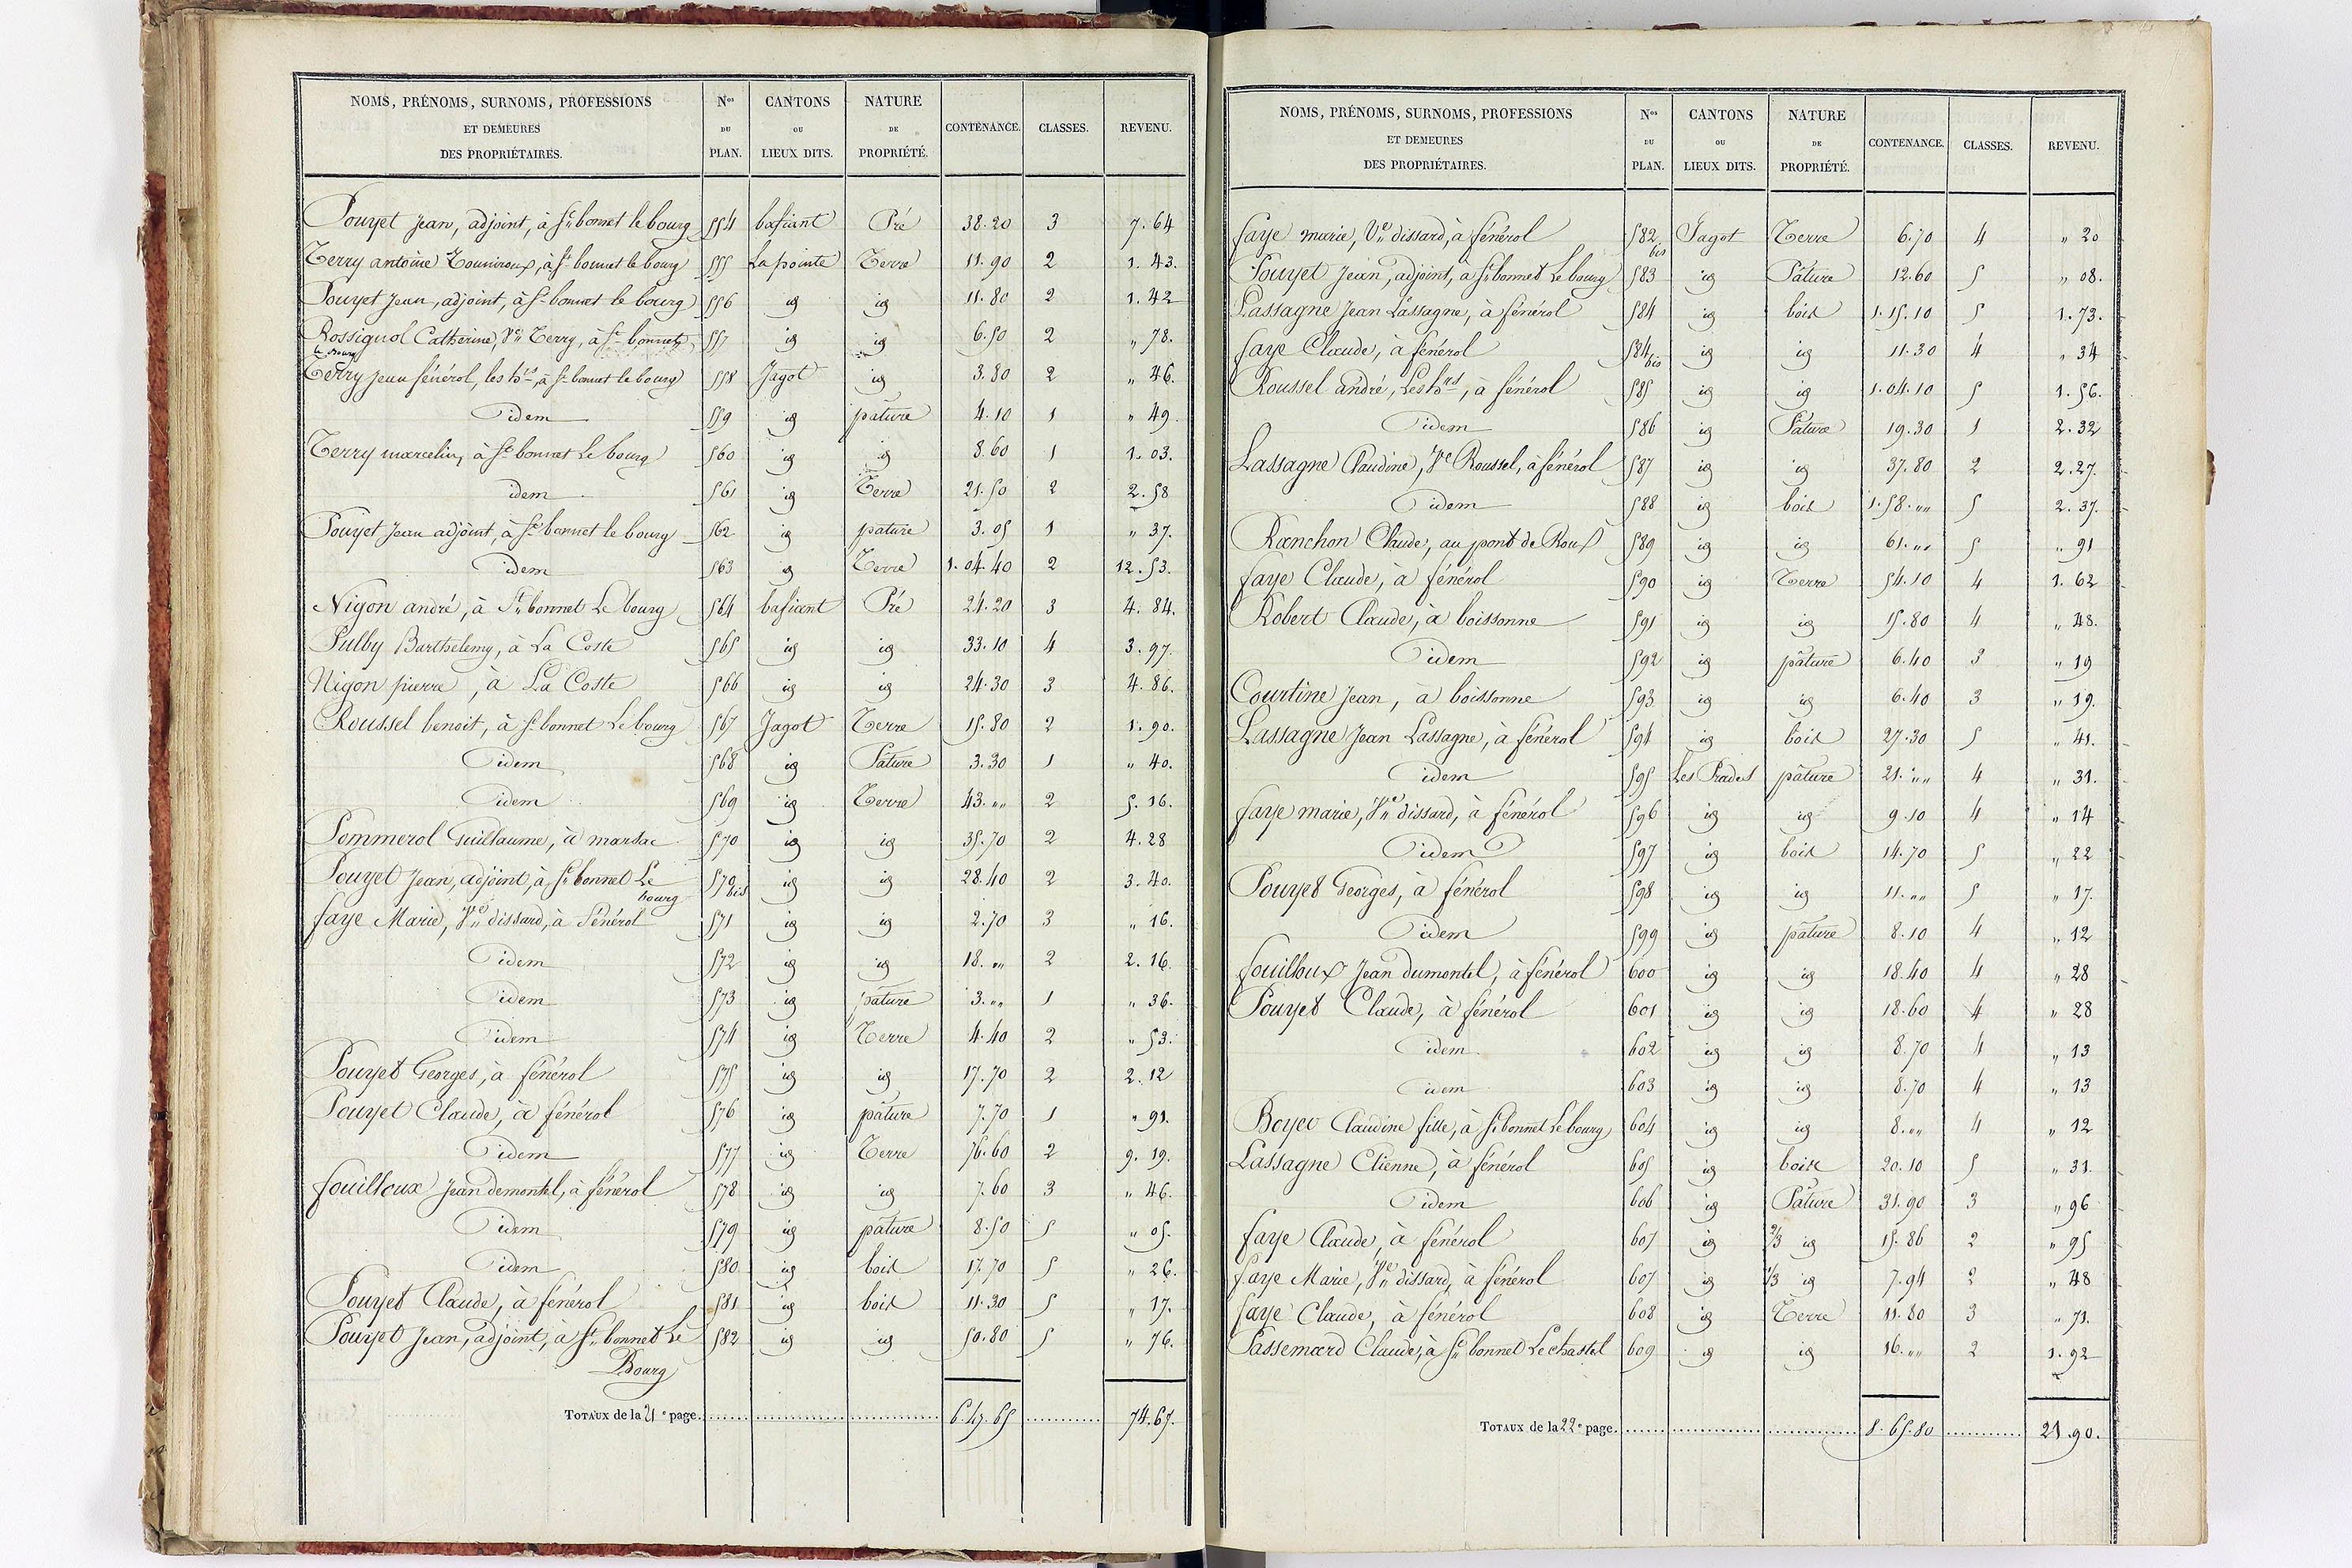 NOMS, PRÉNOMS, SURNOMS, PROFESSIONS ET DEMEURES DES PROPRIÉTAIRES. Nos DU PLAN. CANTONS OU LIEUX DITS. NATURE DE PROPRIÉTÉ. CONTENANCE. CLASSES. REVENU.
Pouyet Jean, adjoint, à St bonnet le bourg 554 bafiant Pré 38.20 3 7.64
Terry antoine, à St bonnet le bourg 555 La pointe Terre 11.90 2 1.43.
Pouyet Jean, adjoint, à St bonnet le bourg 556 id id 11.80 2 1.42
Rossignol Catherine, Ve Terry, à St bonnet 557 id id 6.50 2 „ 78.
le Bourg
Terry Jean fénérol, les hrs, à St bonnet le bourg 558 Jagot id 3.80 2 „ 46.
idem 559 id pâture 4.10 1 „ 49.
Terry marcelin, à St bonnet Le bourg 560 id id 8.60 1 1.03.
idem 561 id Terre 21.50 2 2.58
Pouyet Jean adjoint, à St bonnet le bourg 562 id pâture 3.05 1 „ 37.
idem 563 id Terre 1.04.40 2 12.53.
Nigon andré, à St bonnet Le bourg 564 bafiant Pré 24.20 3 4.84.
Pulby Barthelemy, à La Coste 565 id id 33.10 4 3.97.
Nigon pierre, à La Coste 566 id id 24.30 3 4.86.
Roussel benoit, à St bonnet Le bourg 567 Jagot Terre 15.80 2 1.90.
idem 568 id Pâture 3.30 1 „ 40.
idem 569 id Terre 43. „„ 2 5.16.
Pommerol Guillaume, à marsac 570 id id 35.70 2 4.28
Pouyet Jean, adjoint, à St bonnet Le 570 bis id id 28.40 2 3.40.
bourg
faye Marie, Ve dissard, à Fénérol 571 id id 2.70 3 „ 16.
idem 572 id id 18. „„ 2 2.16.
idem 573 id pâture 3. „„ 1 „ 36.
idem 574 id Terre 4.40 2 „ 53.
Pouyet Georges, à fénérol 575 id id 17.70 2 2.12
Pouyet Claude, à fénérol 576 id pâture 7.70 1 „ 91.
idem 577 id Terre 76.60 2 9.19.
fouilloux Jean demontel, à fénérol 578 id id 7.60 3 „ 46.
idem 579 id pâture 8.50 5 „ 05.
idem 580 id bois 17.70 5 „ 26.
Pouyet Claude, à fénérol 581 id bois 11.30 5 „ 17.
Pouyet Jean, adjoint, à St bonnet Le 582 id id 50.80 5 „ 76.
Bourg
TOTAUX de la 21e page. 6.47.65 74.67.
NOMS, PRÉNOMS, SURNOMS, PROFESSIONS ET DEMEURES DES PROPRIÉTAIRES. Nos DU PLAN. CANTONS OU LIEUX DITS. NATURE DE PROPRIÉTÉ. CONTENANCE. CLASSES. REVENU.
faye marie, Ve dissard, à fénérol 582 bis Jagot Terre 6.70 4 „ 20
Pouyet Jean, adjoint, à St bonnet Le bourg 583 id Pâture 12.60 5 „ 08.
Lassagne Jean Lassagne, à fénérol 584 id bois 1.15.10 5 1.73.
faye Claude, à fénérol 584 bis id id 11.30 4 „ 34
Roussel andré, Les hrs, à fénérol 585 id id 1.04.10 5 1.56.
idem 586 id Pâture 19.30 1 2.32
Lassagne Claudine, Ve Roussel, à fénérol 587 id id 37.80 2 2.27.
idem 588 id bois 1.58. „„ 5 2.37.
Ranchon Claude, au pont de Roux 589 id id 61. „„ 5 „ 91
faye Claude, à fénérol 590 id Terre 54.10 4 1.62
Robert Claude, à boissonne 591 id id 15.80 4 „ 48.
idem 592 id pâture 6.40 3 „ 19
Courtine Jean, à boissonne 593 id id 6.40 3 „ 19.
Lassagne Jean Lassagne, à fénérol 594 id bois 27.30 5 „ 41.
idem 595 Les Prades pâture 21. „„ 4 „ 31.
faye marie, Ve dissard, à fénérol 596 id id 9.10 4 „ 14
idem 597 id bois 14.70 5 „ 22
Pouyet Georges, à fénérol 598 id id 11. „„ 5 „ 17.
idem 599 id pâture 8.10 4 „ 12
fouilloux Jean dumontel, à fénérol 600 id id 18.40 4 „ 28
Pouyet Claude, à fénérol 601 id id 18.60 4 „ 28
idem 602 id id 8.70 4 „ 13
idem 603 id id 8.70 4 „ 13
Boyer Claudine fille, à St bonnet Le bourg 604 id id 8. „„ 4 „ 12
Lassagne Etienne, à fénérol 605 id bois 20.10 5 „ 31
idem 606 id Pâture 31.90 3 „ 96
faye Claude, à fénérol 607 id 2/3 id 15.86 2 „ 95
faye Marie, Ve dissard, à fénérol 607 id 1/3 id 7.94 2 „ 48
faye Claude, à fénérol 608 id Terre 11.80 3 „ 71.
Passemard Claude, à St bonnet Le chastel 609 id id 16. „„ 2 1.92
TOTAUX de la 22e page. 8.65.80 21.90.